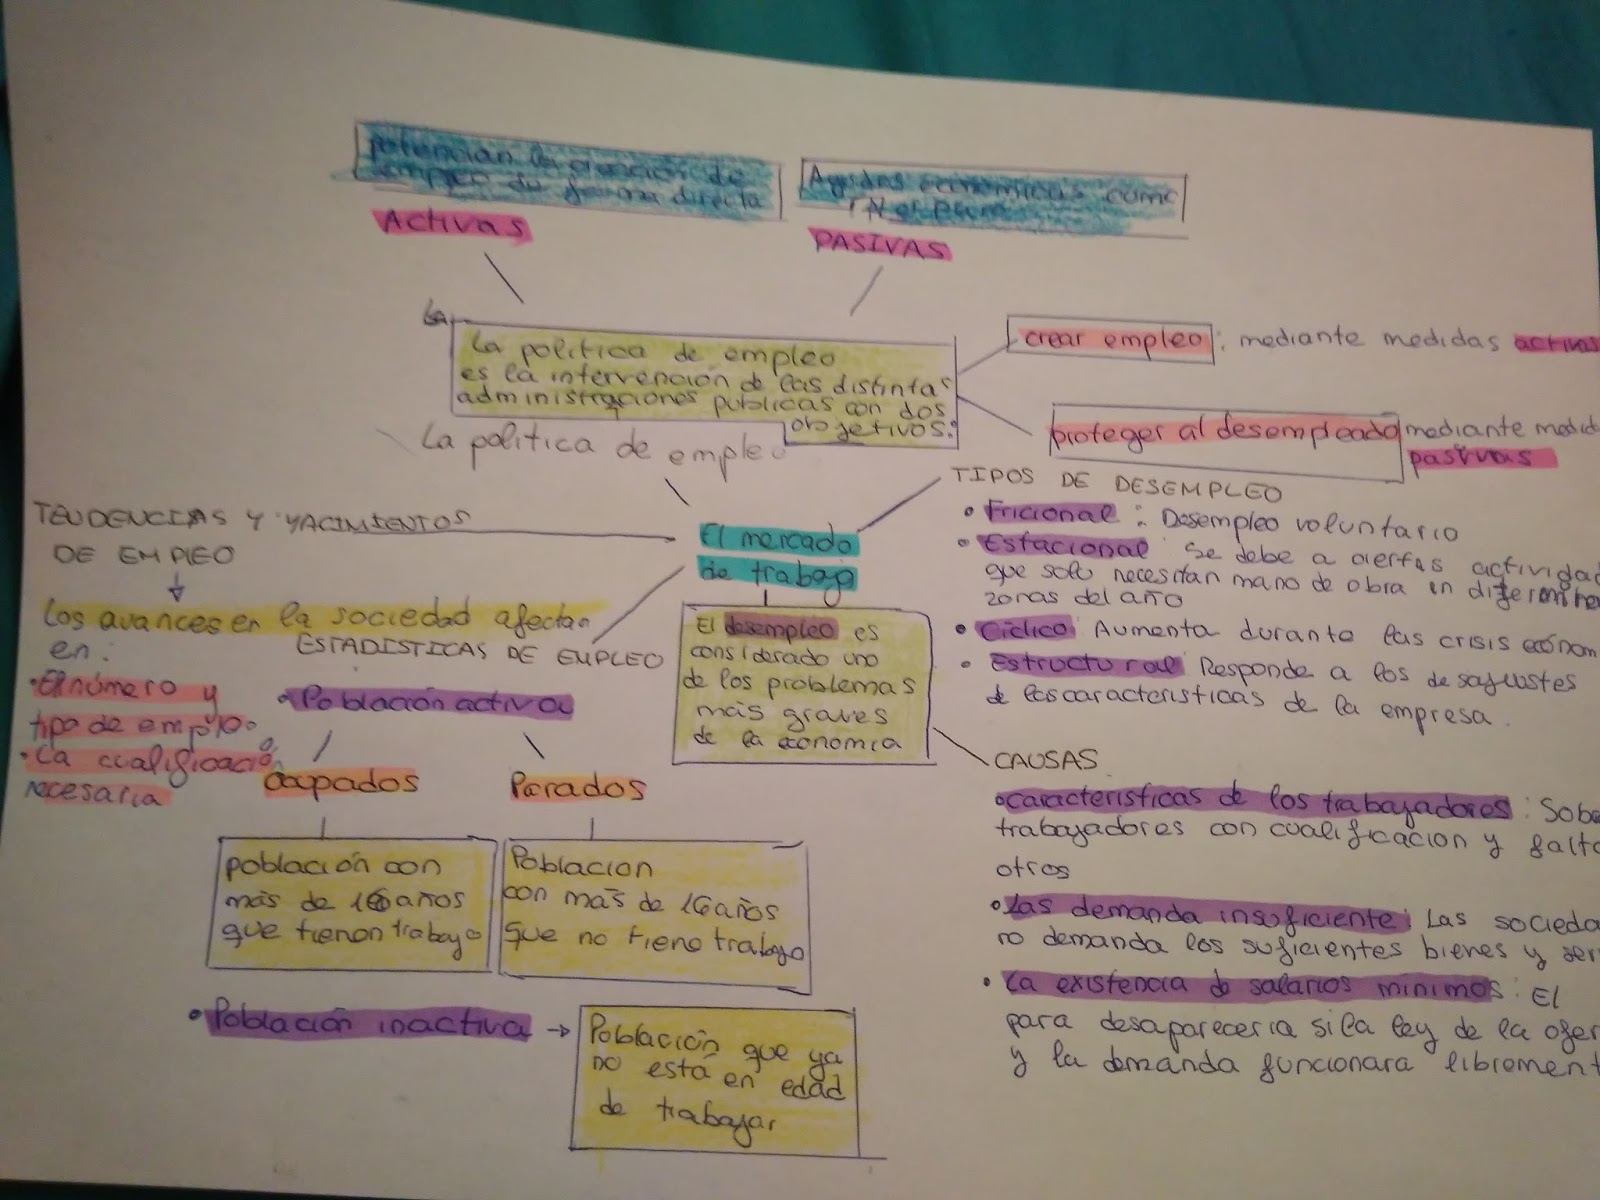 potencian la creación de
empleo de forma directa
Activas
Ayudas económicas como
PASIVAS
La
La politica de empleo
es la intervención de las distintas
administraciones publicas con dos
objetivos:
crear empleo: mediante medidas activas
proteger al desempleado mediante medid
pasivas
La politica de empleo
TENDENCIAS Y YACIMIENTOS
DE EMPLEO
Los avances en la sociedad afectan
en:
• El número y
tipo de empleo
• La cualificación
necesaria
El mercado
de trabajo
El desempleo es
considerado uno
de los problemas
más graves
de la economia
TIPOS DE DESEMPLEO
• Friccional: Desempleo voluntario
• Estacional se debe a ciertas activida
que solo necesitan mano de obra en diferen
zonas del año
• Cíclico: Aumenta durante las crisis econom
• Estructural Responde a los desajustes
de las caracteristicas de la empresa.
CAUSAS
• caracteristicas de los trabajadores: Sob
trabajadores con cualificacion y falta
otros
• Las demanda insuficiente: Las socieda
no demanda los suficientes bienes y ser
• La existencia de salarios minimos: El
para desapareceria si la ley de la ofer
y la demanda funcionara librement
ESTADISTICAS DE EMPLEO
• Población activa
Ocupados
Parados
población con
más de 16 años
que tienen trabajo
Poblacion
con más de 16 años
que no tiene trabajo
• Población inactiva →
Población que ya
no está en edad
de trabajar